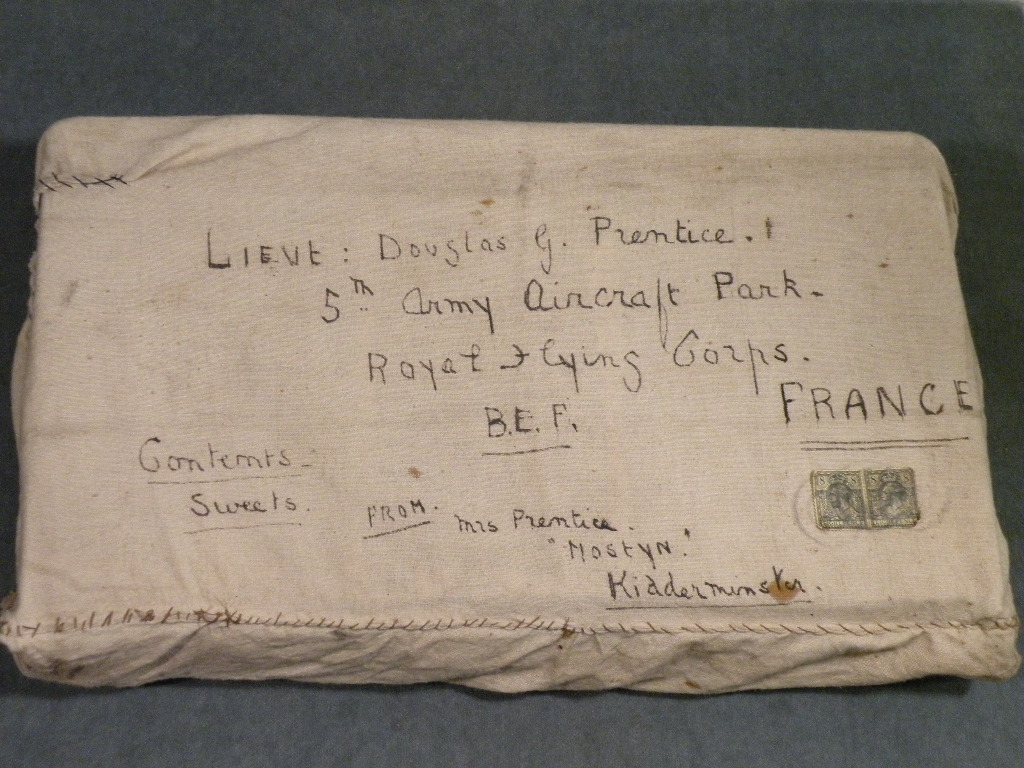 LIEUt: Douglas G. Prentice.
5th Army Aircraft Park.
Royal Flying Corps.
B.E.F.
FRANCE
Contents.
Sweets.
FROM.
Mrs Prentice.
"Mostyn."
Kidderminster.